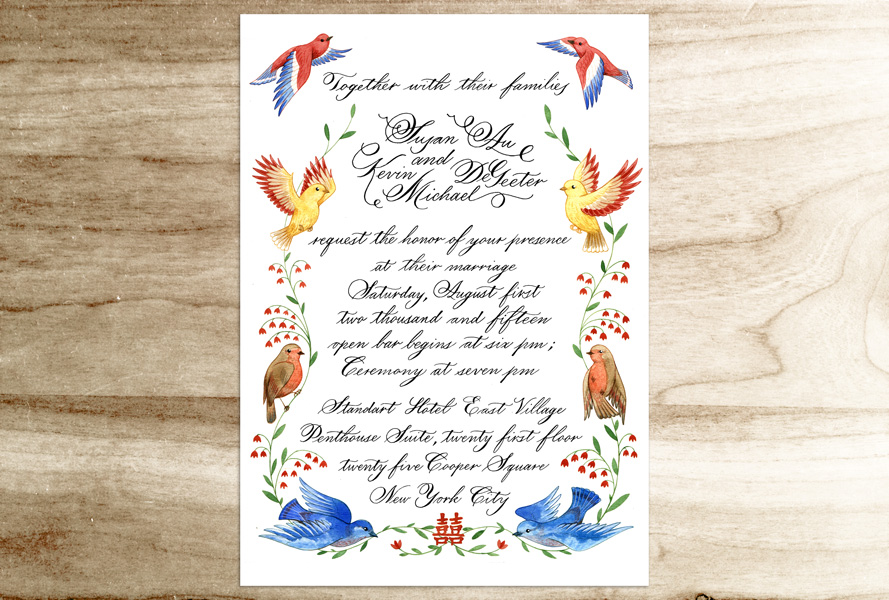 Together with their families
Susan Au
and
Kevin DeGeeter
Michael
request the honor of your presence
at their marriage
Saturday, August first
two thousand and fifteen
open bar begins at six pm ;
Ceremony at seven pm
Standart Hotel East Village
Penthouse Suite, twenty first floor
twenty five Cooper Square
New York City
囍